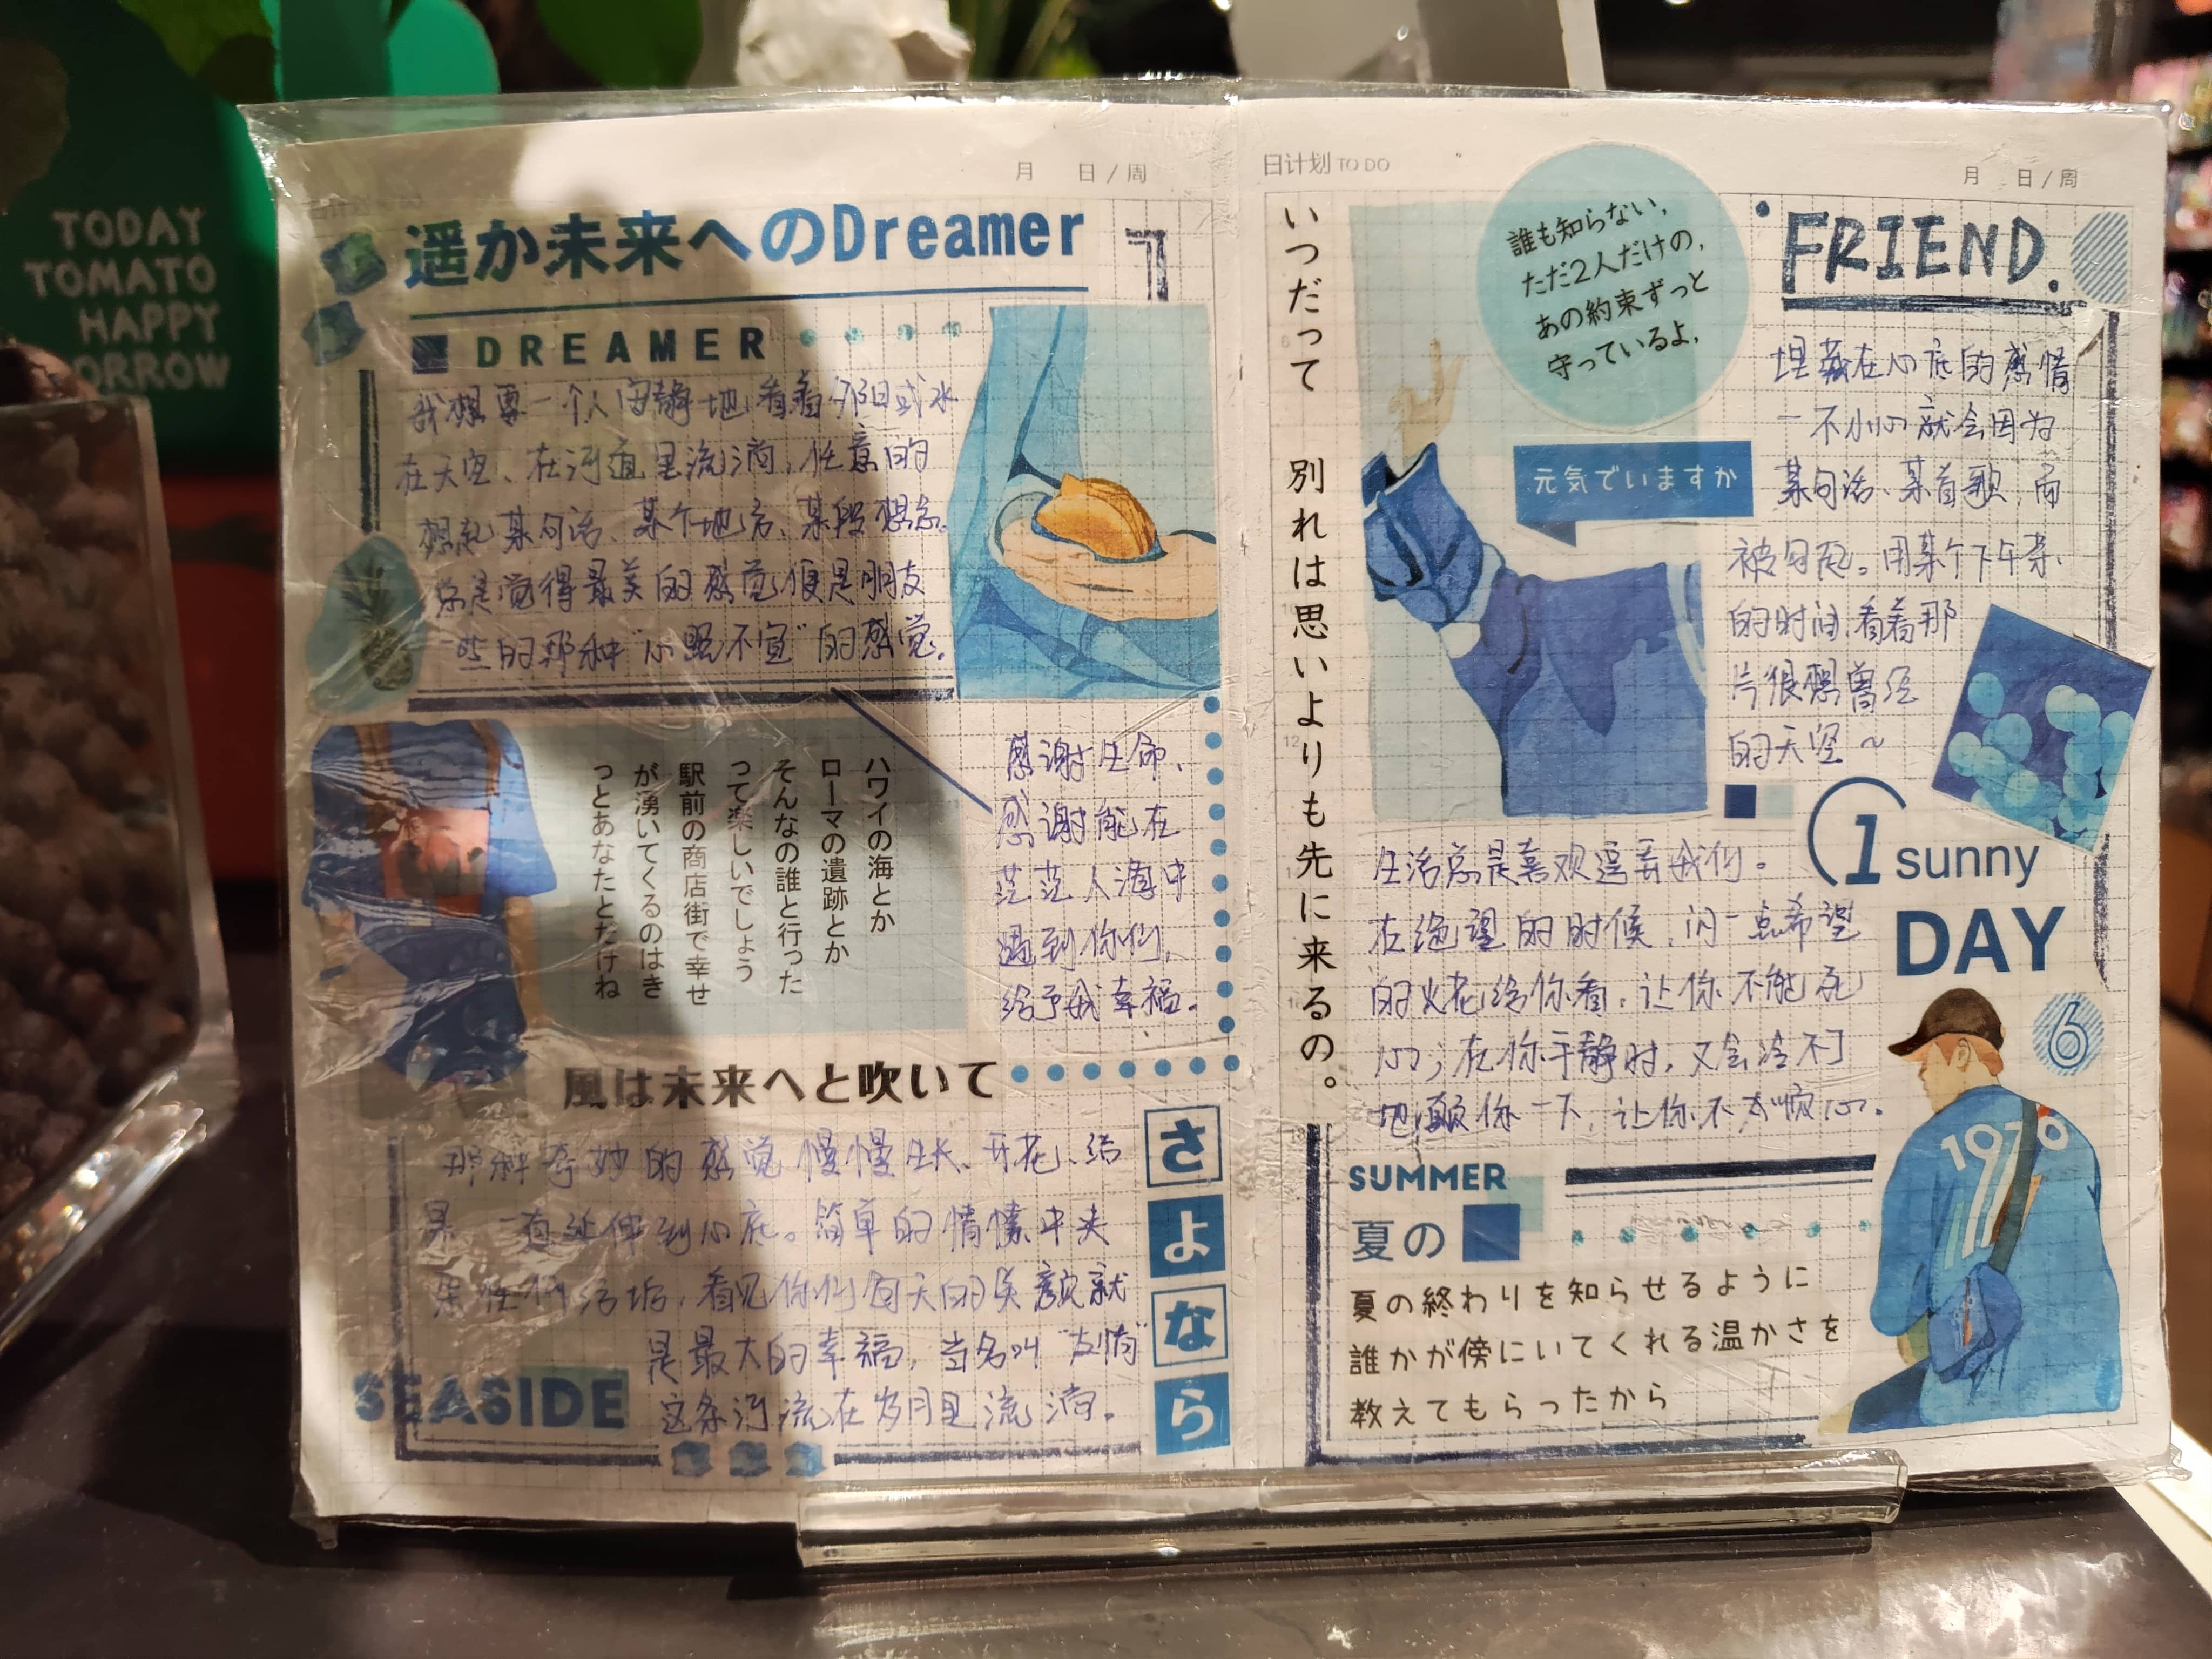 TODAY
TOMATO
HAPPY
ORROW
月 日/周
遥か未来へのDreamer
DREAMER
我想要一个人安静地看着夕阳或水
在天空、在河道里流淌,任意的
想起某句话、某个地方、某段想念.
总是觉得最美的感觉便是朋友
一些的那种“心照不宣”的感觉.
ハワイの海とか
ローマの遺跡とか
そんなの誰と行った
って楽しいでしょう
駅前の商店街で幸せ
が湧いてくるのはき
っとあなたとだけね
感谢生命、
感谢能在
茫茫人海中
遇到你们,
给予我幸福.
風は未来へと吹いて
那种奇妙的感觉慢慢生长、开花、结
果 一直延伸到心底。简单的情愫中夹
杂任何污垢,看见你们每天的笑颜就
是最大的幸福,当名叫“友情”
这条河流在岁月里流淌.
SEASIDE
さよなら
日计划 TO DO
月 日/周
いつだって 別れは思いよりも先に来るの。
誰も知らない,
ただ2人だけの,
あの約束ずっと
守っているよ,
元気でいますか
FRIEND.
埋藏在心底的感情
一不小心就会因为
某句话、某首歌,而
被勾起。用某个下午茶
的时间,看着那
片很想曾经
的天空~
1 sunny
DAY
生活总是喜欢逗弄我们。
在绝望的时候,闪一点希望
的火花给你看,让你不能死
心;在你平静时,又会冷不
地颠你一下,让你不太顺心.
6
1976
SUMMER
夏の
夏の終わりを知らせるように
誰かが傍にいてくれる温かさを
教えてもらったから